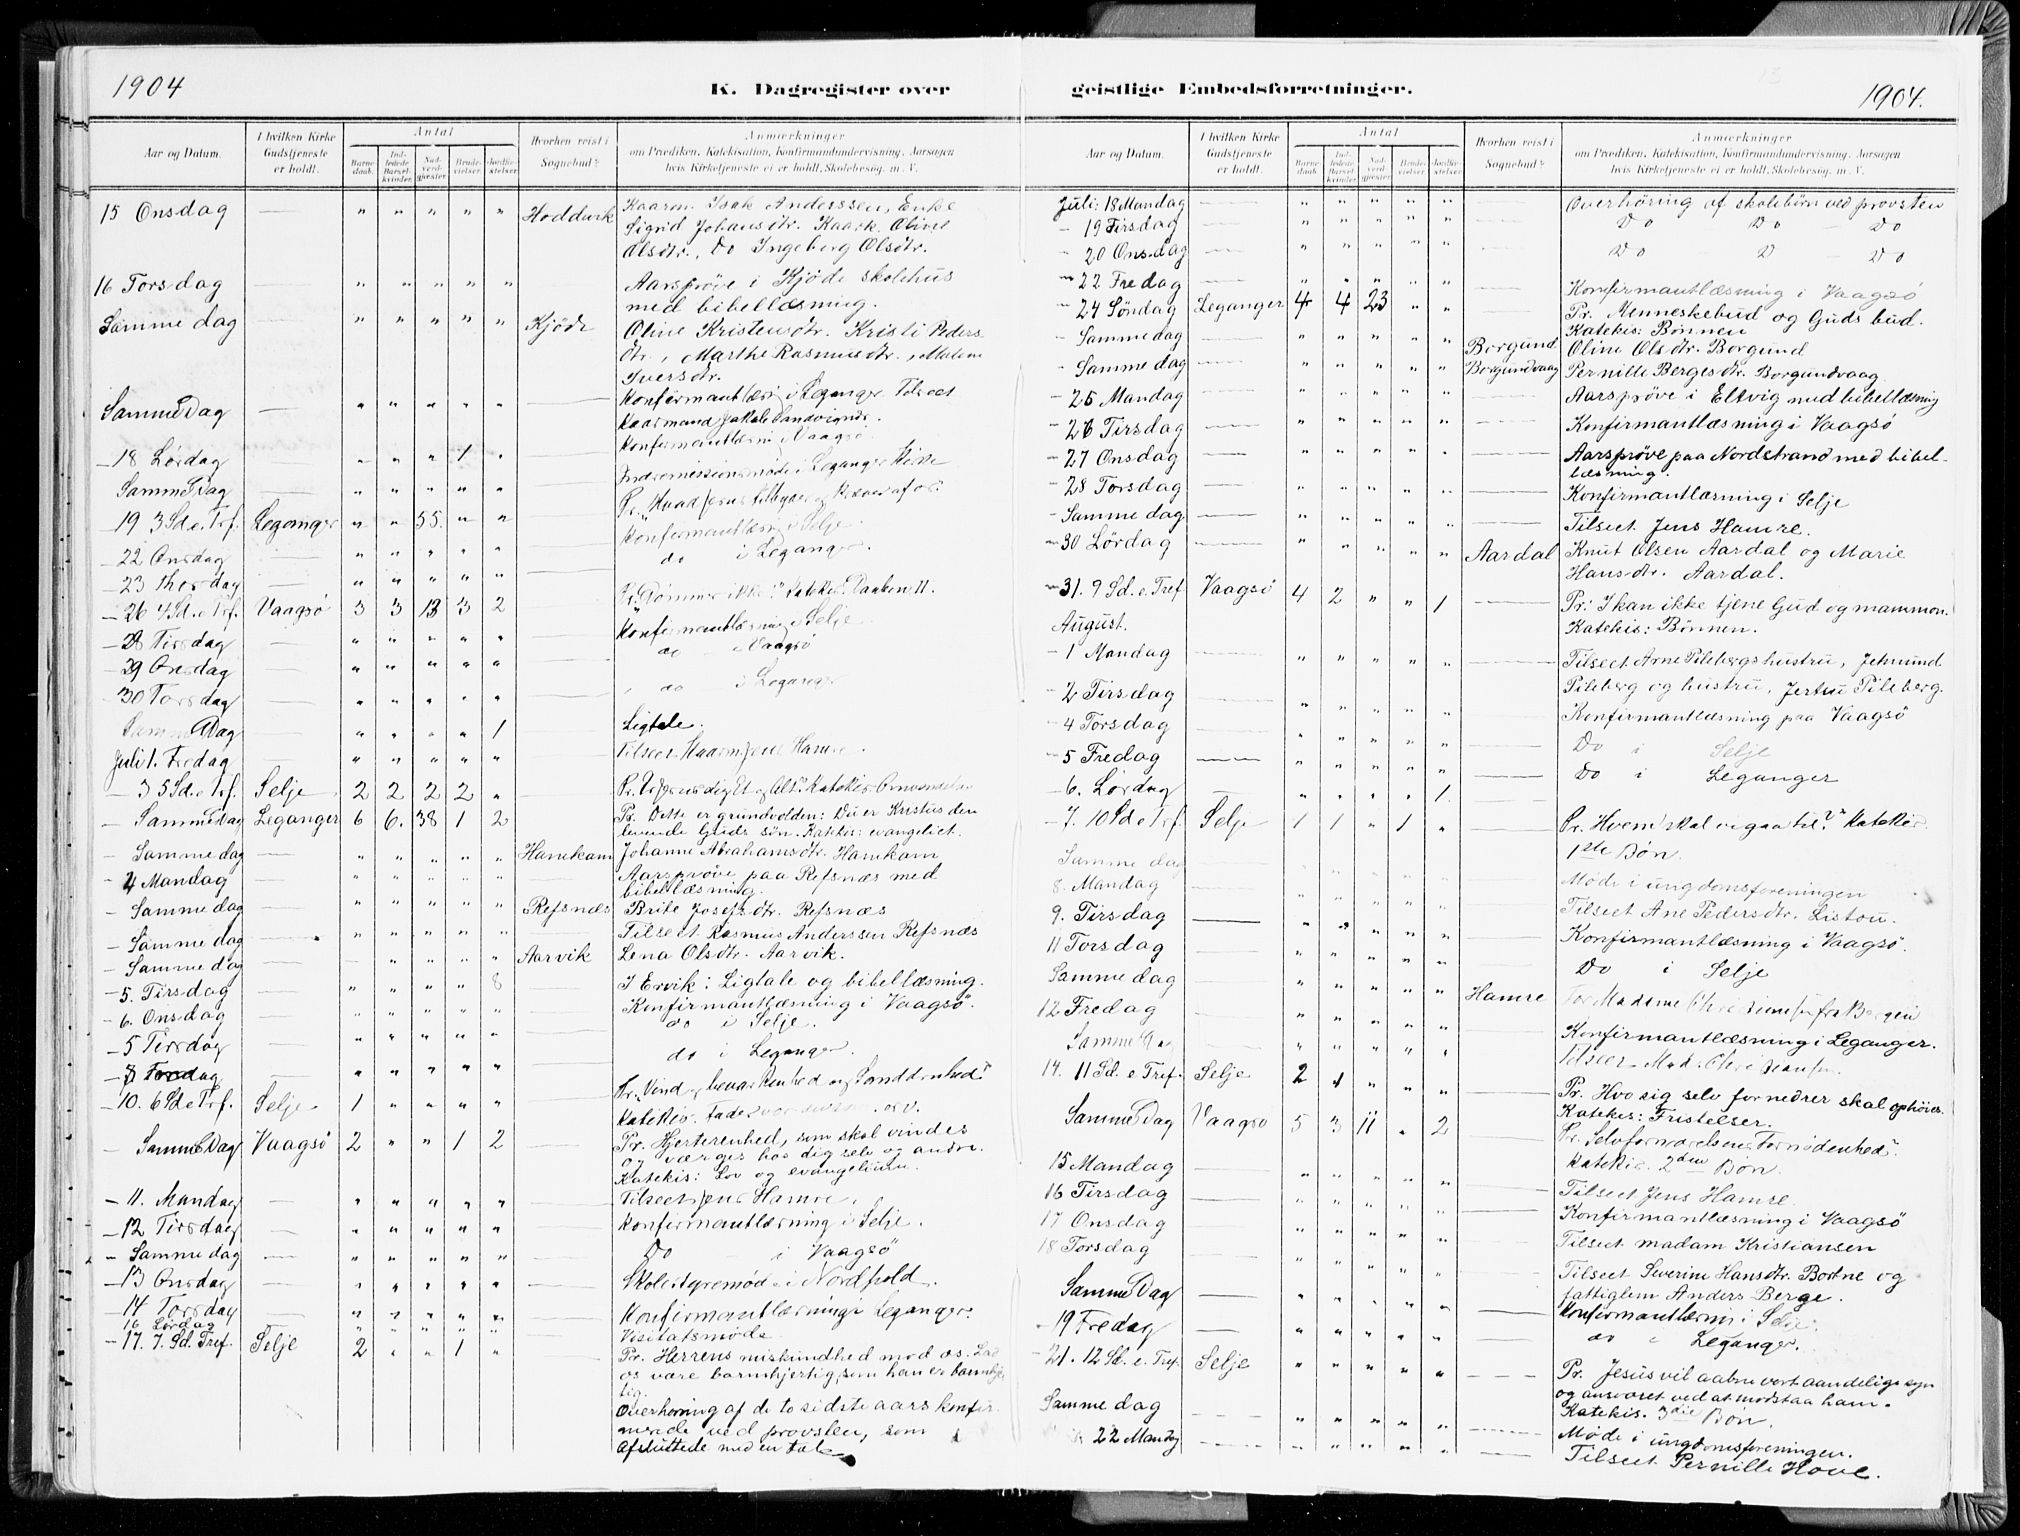 1904
K. Dagregister over
Aar og Datum.
I hvilken Kirke Gudstjeneste er holdt.
Antal
Barne-daab.
Ind-ledede Barsel-kvinder.
Nad-verd-gjæster.
Brude-vielser.
Jordfæ-stelser.
Hvorhen reist i Sognebud?
Anmærkninger
om Prædiken, Katekisation, Konfirmandundervisning, Aarsagen
hvis Kirketjeneste ei er holdt, Skolebesøg. m. V.
15 Onsdag — " " " " " Hoddevik Kaarm. Isak Anderssen, Enke
Sigrid Johansdtr. Kaark. Oline
Olsdtr., Do Ingeborg Olsdtr.
16 Torsdag — " " " " " Aarsprøve i Kjøde skolehus
med bibellæsning.
Samme dag — " " " " " Kjøde Oline Kristensdtr. Kristi Peders-
dtr., Marthe Rasmusdtr., Malene
Iversdtr.
Samme Dag — " " " " " — Konfirmantlæsn i Leganger Tilseet
Kaarmand Jakob Sandviknes.
Konfirmantlæsn i Vaagsø.
— 18 Lørdag — " " " 1 " —
Samme Dag — " " " " " — Indremissionsmøde i Leganger Kirke
— 19 3 Sd. e. Trf. Leganger " " 55. " " —
— 22 Onsdag — " " " " " — Konfirmantlæsn i Selje.
— 23 Thorsdag — " " " " " — do i Leganger.
— 26 4 Sd. e. Trf. Vaagsø 3 3 13 3 2 — Pr. "Dømmer ikke!" Katekis. Daaben II.
— 28 Tirsdag — " " " " " — Konfirmantlæsning i Selje.
— 29 Onsdag — " " " " " — do i Vaagsø
— 30 Torsdag — " " " " " — do i Leganger
Samme Dag — " " " " 1 — Ligtale.
Juli 1. Fredag — " " " " " — Tilseet Kaarm Jens Hamre.
— 3 5 Sd. e. Trf. Selje 2 2 2 2 " —
— Samme Dag Leganger 6 6. 38 1 2 — Pr. Dette er grundvolden: Du er Kristus den
levende Guds søn. Katekis: evangeliet.
— Samme dag — " " " " " Hanekam Johanne Abrahamsdtr. Hanekam
— 4 Mandag — " " " " " Aarsprøve paa Refsnæs med
bibellæsning.
— Samme dag — " " " " " Refsnæs Brite Josefsdtr. Refsnæs
— Samme dag — " " " " " Tilseet Rasmus Anderssen Refsnæs
— Samme dag — " " " " " Aarvik Lena Olsdtr. Aarvik.
— 5. Tirsdag — " " " " 8 — I Ervik: Ligtale og bibellæsning.
— 6. Onsdag — " " " " " — Konfirmantlæsning i Vaagsø.
— 5 Tirsdag — " " " " " — do i Selje.
— 7 Torsdag — " " " " " — do i Leganger.
— 10. 6 Sd. e Trf. Selje 1 " " " " —
— Samme Dag Vaagsø 2 " " 1 2 — Pr. Hjerterenhed, som skal vindes
og værges hos dig selv og andre.
Katekis: Lov og evangelium.
— 11. Mandag — " " " " " — Tilseet Jens Hamre.
— 12 Tirsdag — " " " " " — Konfirmantlæsning i Selje.
— Samme dag — " " " " " — Do i Vaagsø
— 13 Onsdag — " " " " " — Skolestyremøde i Nordfjold.
— 14 Torsdag — " " " " " — Konfirmantlæsning i Leganger.
16 Lørdag — " " " " " — Visitatsmøde.
— 17. 7. Sd. Tref. Selje 2 " " 1 " — Pr. Herrens miskundhed mod os. Lad
os være barmhjertig, som han er barmhjer-
tig.
Overhøring af de to sidste aars konfir-
merede ved provsten, som
afsluttede med en tale
geistlige Embedsforretninger.
1904.
Aar og Datum.
I hvilken Kirke Gudstjeneste er holdt.
Antal
Barne-daab.
Ind-ledede Barsel-kvinder.
Nad-verd-gjæster.
Brude-vielser.
Jordfæ-stelser.
Hvorhen reist i Sognebud?
Anmærkninger
om Prædiken, Katekisation, Konfirmandundervisning, Aarsagen
hvis Kirketjeneste ei er holdt, Skolebesøg. m. V.
Juli: 18 Mandag — " " " " " — Overhøring af skolebørn ved provsten
— 19 Tirsdag — " " " " " — Do — Do — Do
— 20 Onsdag — " " " " " — Do — D — Do
— 22 Fredag — " " " " " — Konfirmantlæsning i Vaagsø
— 24 Søndag Leganger 4 4 23 " " — Pr. Menneskebud og Guds bud.
Katekis: Bønnen
— Samme dag — " " " " " Borgund Oline Olsdtr. Borgund
— Samme dag — " " " " " Borgundvaag Pernille Bergesdtr. Borgundvaag
— 25 Mandag — " " " " " — Aarsprøve i Eltvig med bibellæsning
— 26 Tirsdag — " " " " " — Konfirmantlæsning i Vaagsø
— 27 Onsdag — " " " " " — Aarsprøve paa Nordstrand med bibel-
læsning.
— 28 Torsdag — " " " " " — Konfirmantlæsning i Selje
— Samme dag — " " " " " — Tilseet Jens Hamre.
— 30 Lørdag — " " " " " Aardal Knut Olsen Aardal og Marie
Hansdtr. Aardal.
— 31. 9 Sd. e. Tref Vaagsø 4 2 " " 1 — Pr: I kan ikke tjene Gud og mammon.
Katekis: Bønnen.
August.
— 1 Mandag — " " " " " — Tilseet Arne Pilebergs hustru, Jetmund
— 2 Tirsdag — " " " " " — Pileberg og hustru, Jertru Pileberg.
— 4 Torsdag — " " " " " — Konfirmantlæsning paa Vaagsø
— 5 Fredag — " " " " " — Do i Selje
— 6. Lørdag — " " " " 1. — Do i Leganger
— 7. 10 Sd e Trf Selje 1 1 " 1 " — Pr. Hvem skal vi gaa til?" Katekis.
1ste Bøn.
Samme dag — Møde i ungdomsforeningen
8. Mandag — " " " " " — Tilseet Ane Pedersdtr. Listou.
9. Tirsdag — " " " " " — Konfirmantlæsning i Vaagsø.
11 Torsdag — " " " " " — Do i Selje
Samme dag — " " " " " Hamre
12 Fredag — " " " " " — Konfirmantlæsning i Leganger.
Samme Dag — " " " " " —
14. 11 Sd. e Tref. Selje 2 1 " " " — Pr. Hvo sig selv fornedrer skal ophøies.
Katekis: Fristelser.
Samme Dag Vaagsø 5 3 11 " 2 — Pr. Selvfornægtelsens Fornødenhed".
Katekis. 2den Bøn.
15 Mandag — " " " " " — Tilseet Jens Hamre.
16 Tirsdag — " " " " " — Konfirmantlæsning i Vaagsø
17 Onsdag — " " " " " — Tilseet madam Kristiansen
18 Torsdag — " " " " " — Tilseet Severine Hansdtr. Bortne og
fattiglem Anders Berge.
Samme Dag — " " " " " — Konfirmantlæsn i Selje.
— 19 Fredag — " " " " " — do i Leganger.
— 21. 12 Sd. e. Tref. Selje " " " " " — Pr. Jesus vil aabne vort aandelige syn
og ansvaret ved at modstaa ham.
Katekis. 3die Bøn.
Samme dag — " " " " " — Møde i ungdomsforeningen.
22 Mandag — " " " " " — Tilseet Pernille Hove.